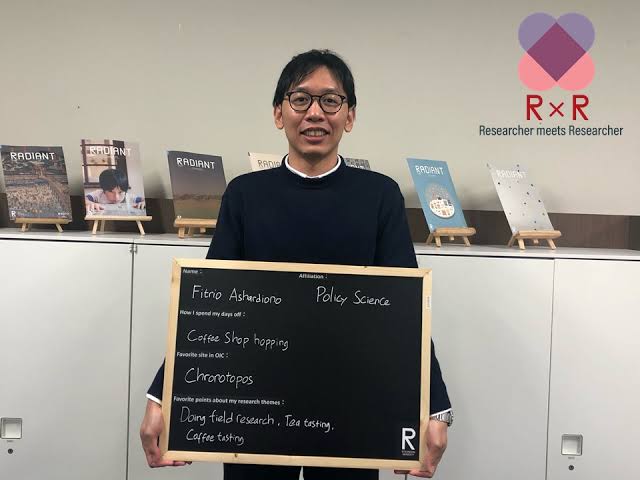 R×R
Researcher meets Researcher
RADIANT
RADIANT
RADIANT
RADIANT
RADIANT
Name：
Affiliation：
Fitrio Ashardiono
Policy Science
How I spend my days off：
Coffee Shop hopping
Favorite site in OIC：
Chronotopos
Favorite points about my research themes：
Doing field research, Tea tasting,
Coffee tasting
R